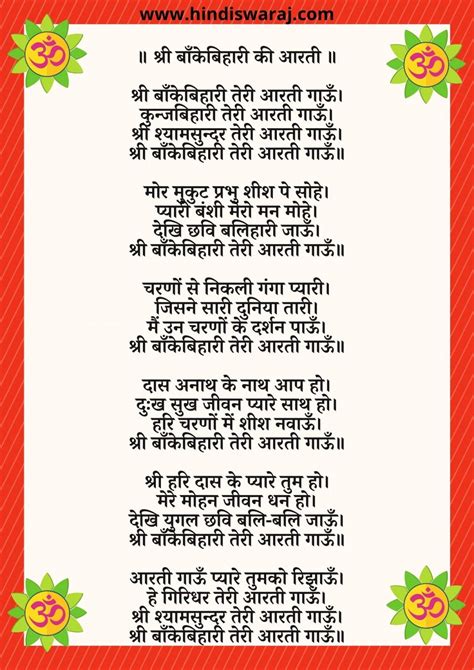 www.hindiswaraj.com
॥ श्री बाँकेबिहारी की आरती ॥
श्री बाँकेबिहारी तेरी आरती गाऊँ।
कुन्जबिहारी तेरी आरती गाऊँ।
श्री श्यामसुन्दर तेरी आरती गाऊँ।
श्री बाँकेबिहारी तेरी आरती गाऊँ॥
मोर मुकुट प्रभु शीश पे सोहे।
प्यारी बंशी मेरो मन मोहे।
देखि छवि बलिहारी जाऊँ।
श्री बाँकेबिहारी तेरी आरती गाऊँ॥
चरणों से निकली गंगा प्यारी।
जिसने सारी दुनिया तारी।
मैं उन चरणों के दर्शन पाऊँ।
श्री बाँकेबिहारी तेरी आरती गाऊँ॥
दास अनाथ के नाथ आप हो।
दुःख सुख जीवन प्यारे साथ हो।
हरि चरणों में शीश नवाऊँ।
श्री बाँकेबिहारी तेरी आरती गाऊँ॥
श्री हरि दास के प्यारे तुम हो।
मेरे मोहन जीवन धन हो।
देखि युगल छवि बलि-बलि जाऊँ।
श्री बाँकेबिहारी तेरी आरती गाऊँ॥
आरती गाऊँ प्यारे तुमको रिझाऊँ।
हे गिरिधर तेरी आरती गाऊँ।
श्री श्यामसुन्दर तेरी आरती गाऊँ।
श्री बाँकेबिहारी तेरी आरती गाऊँ॥
ॐ
ॐ
ॐ
ॐ